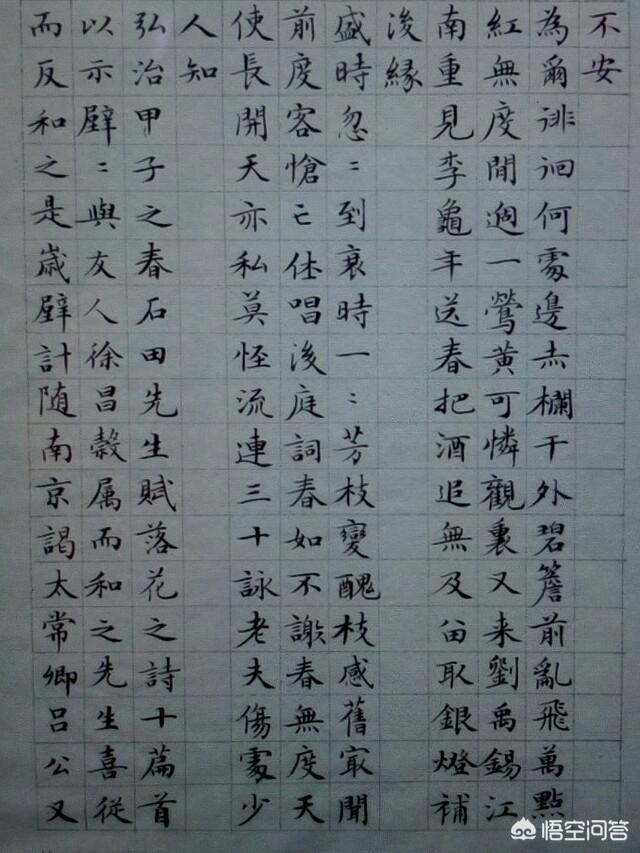 不安
為爾徘徊何處邊赤欄干外碧簷前亂飛萬點
紅無度閒過一鶯黃可憐觀裏又来劉禹錫江
南重見李龜年送春把酒追無及畄取銀燈補
後縁
盛時忽〻到衰時一〻芳枝變醜枝感舊冣聞
前度客愴亡休唱後庭詞春如不謝春無度天
使長開天亦私莫怪流連三十詠老夫傷處少
人知
弘治甲子之春石田先生賦落花之詩十篇首
以示壁〻與友人徐昌穀属而和之先生喜從
而反和之是歲壁計随南京謁太常卿吕公又
悟空问答